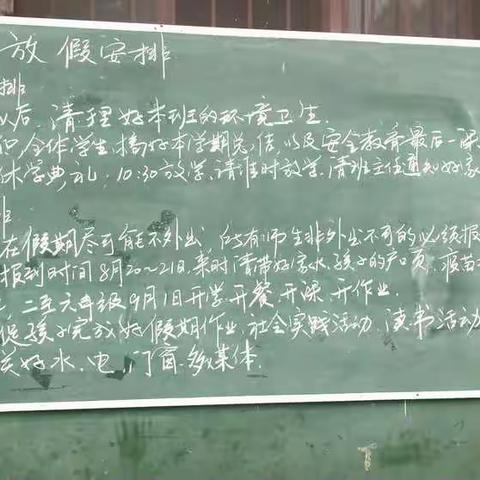 放假安排
排
以后,清理好本班的环境卫生.
织全体学生搞好本学期总结,以及安全教育最后一课
休学典礼,10:30放学,请准时放学,请班主任通知好家
在假期尽可能不外出,所有师生非外出不可的必须报
报到时间8月20~21日,来时请带好 孩子的户口页,疫苗
二、五六年级9月1日开学开餐,开课,开作业.
促孩子完成好假期作业,社会实践活动,读书活动
关好水、电、门窗、多媒体.